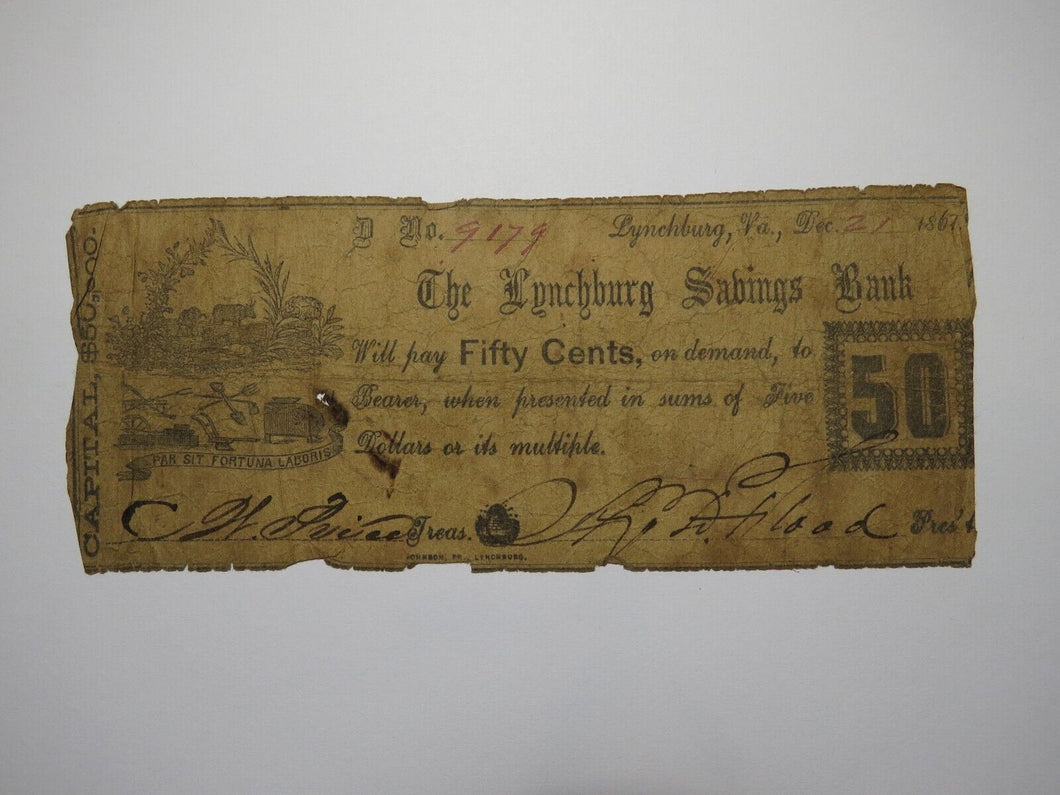 CAPITAL, $50,000.
D No. 9179 Lynchburg, Va., Dec. 21 1861
The Lynchburg Savings Bank
Will pay Fifty Cents, on demand, to
Bearer, when presented in sums of Five
Dollars or its multiple.
50
PAR SIT FORTUNA LABORIS
Treas. Flood Pres't
JOHNSON, PR., LYNCHBURG.